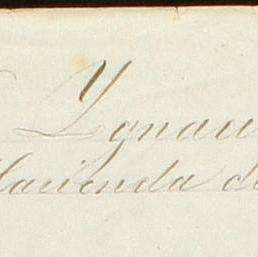 Ygnaci
Hacienda de